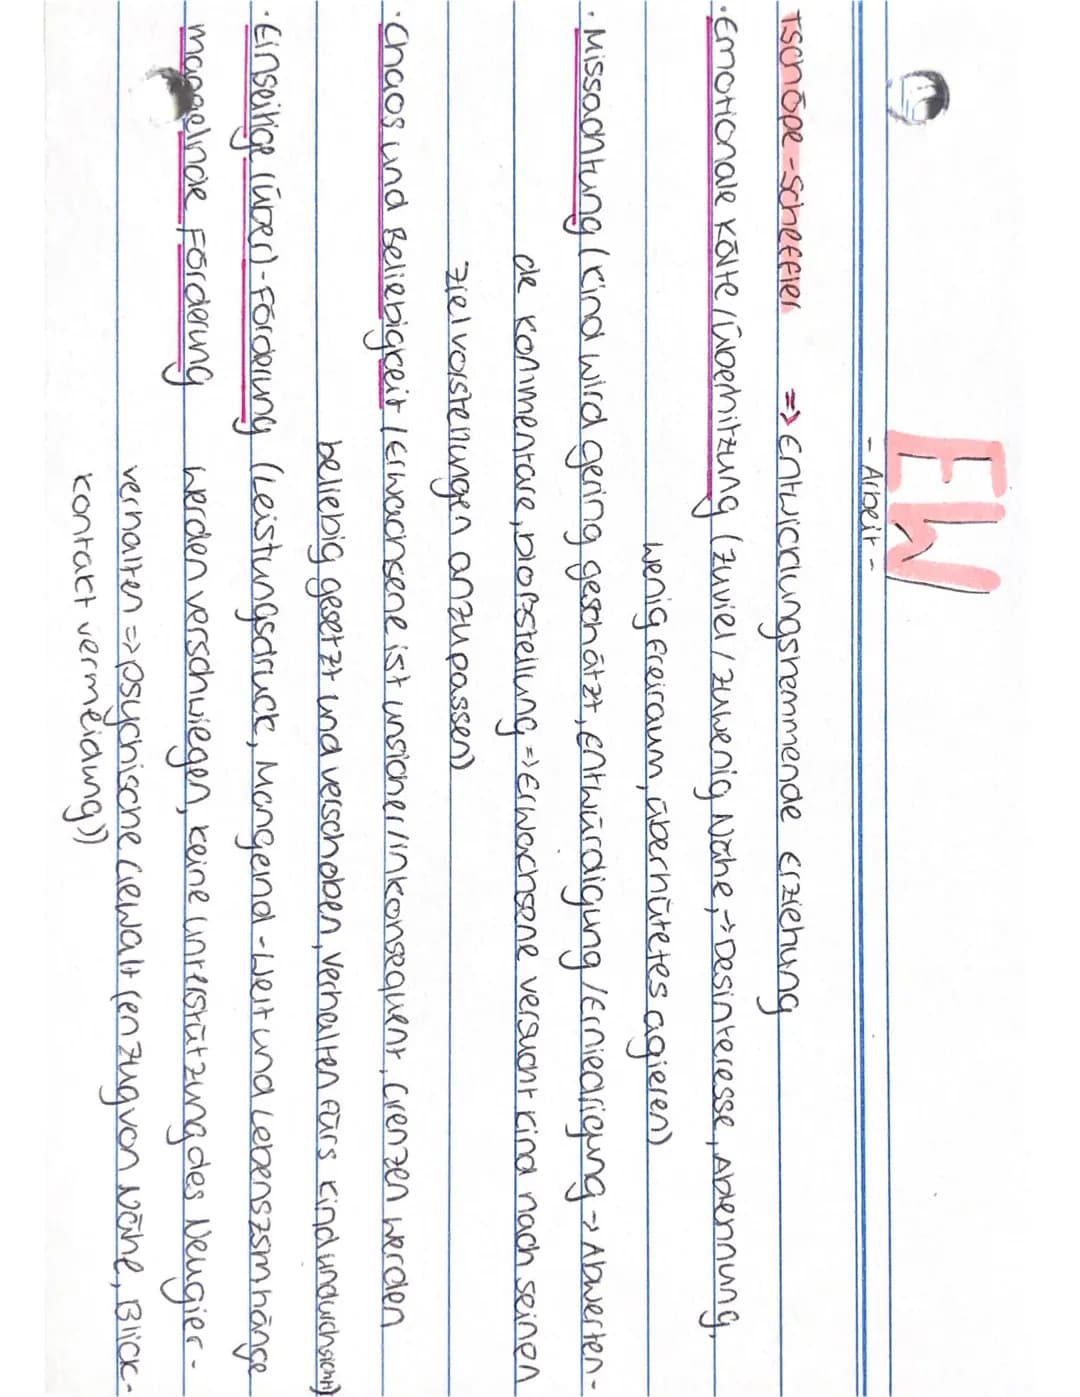 EW
- Arbeit -
Tschöpe-Scheffler => Entwicklungshemmende Erziehung
· Emotionale Kälte/Überhitzung (zuviel/zuwenig Nähe, -> Desinteresse, Ablehnung,
wenig Freiraum, überhütetes agieren)
· Missachtung (Kind wird gering geschätzt, Entwürdigung/Erniedrigung -> Abwerten-
de Kommentare, bloßstellung => Erwachsene versucht Kind nach seinen
Zielvorstellungen anzupassen)
· Chaos und Beliebigkeit (Erwachsene ist unsicher/inkonsequent, Grenzen werden
beliebig gesetzt und verschoben, Verhalten fürs Kind undurchsicht)
· Einseitige (über)-Förderung (Leistungsdruck, Mangelnd -Welt und Lebenszsmhänge
mangelnde Förderung werden verschwiegen, keine Unterstützung des Neugier-
verhalten => psychische Gewalt (enzug von Nähe, Blick-
kontakt vermeidung))